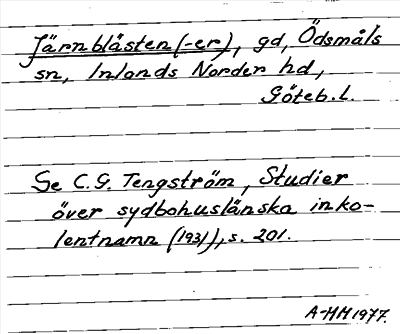 Järnblåsten (-er), gd, Ödsmåls
sn, Inlands Norder hd,
Göteb. l.
Se C. G. Tengström, Studier
över sydbohuslänska inko-
lentnamn (1931), s. 201.
A-HH 1977.